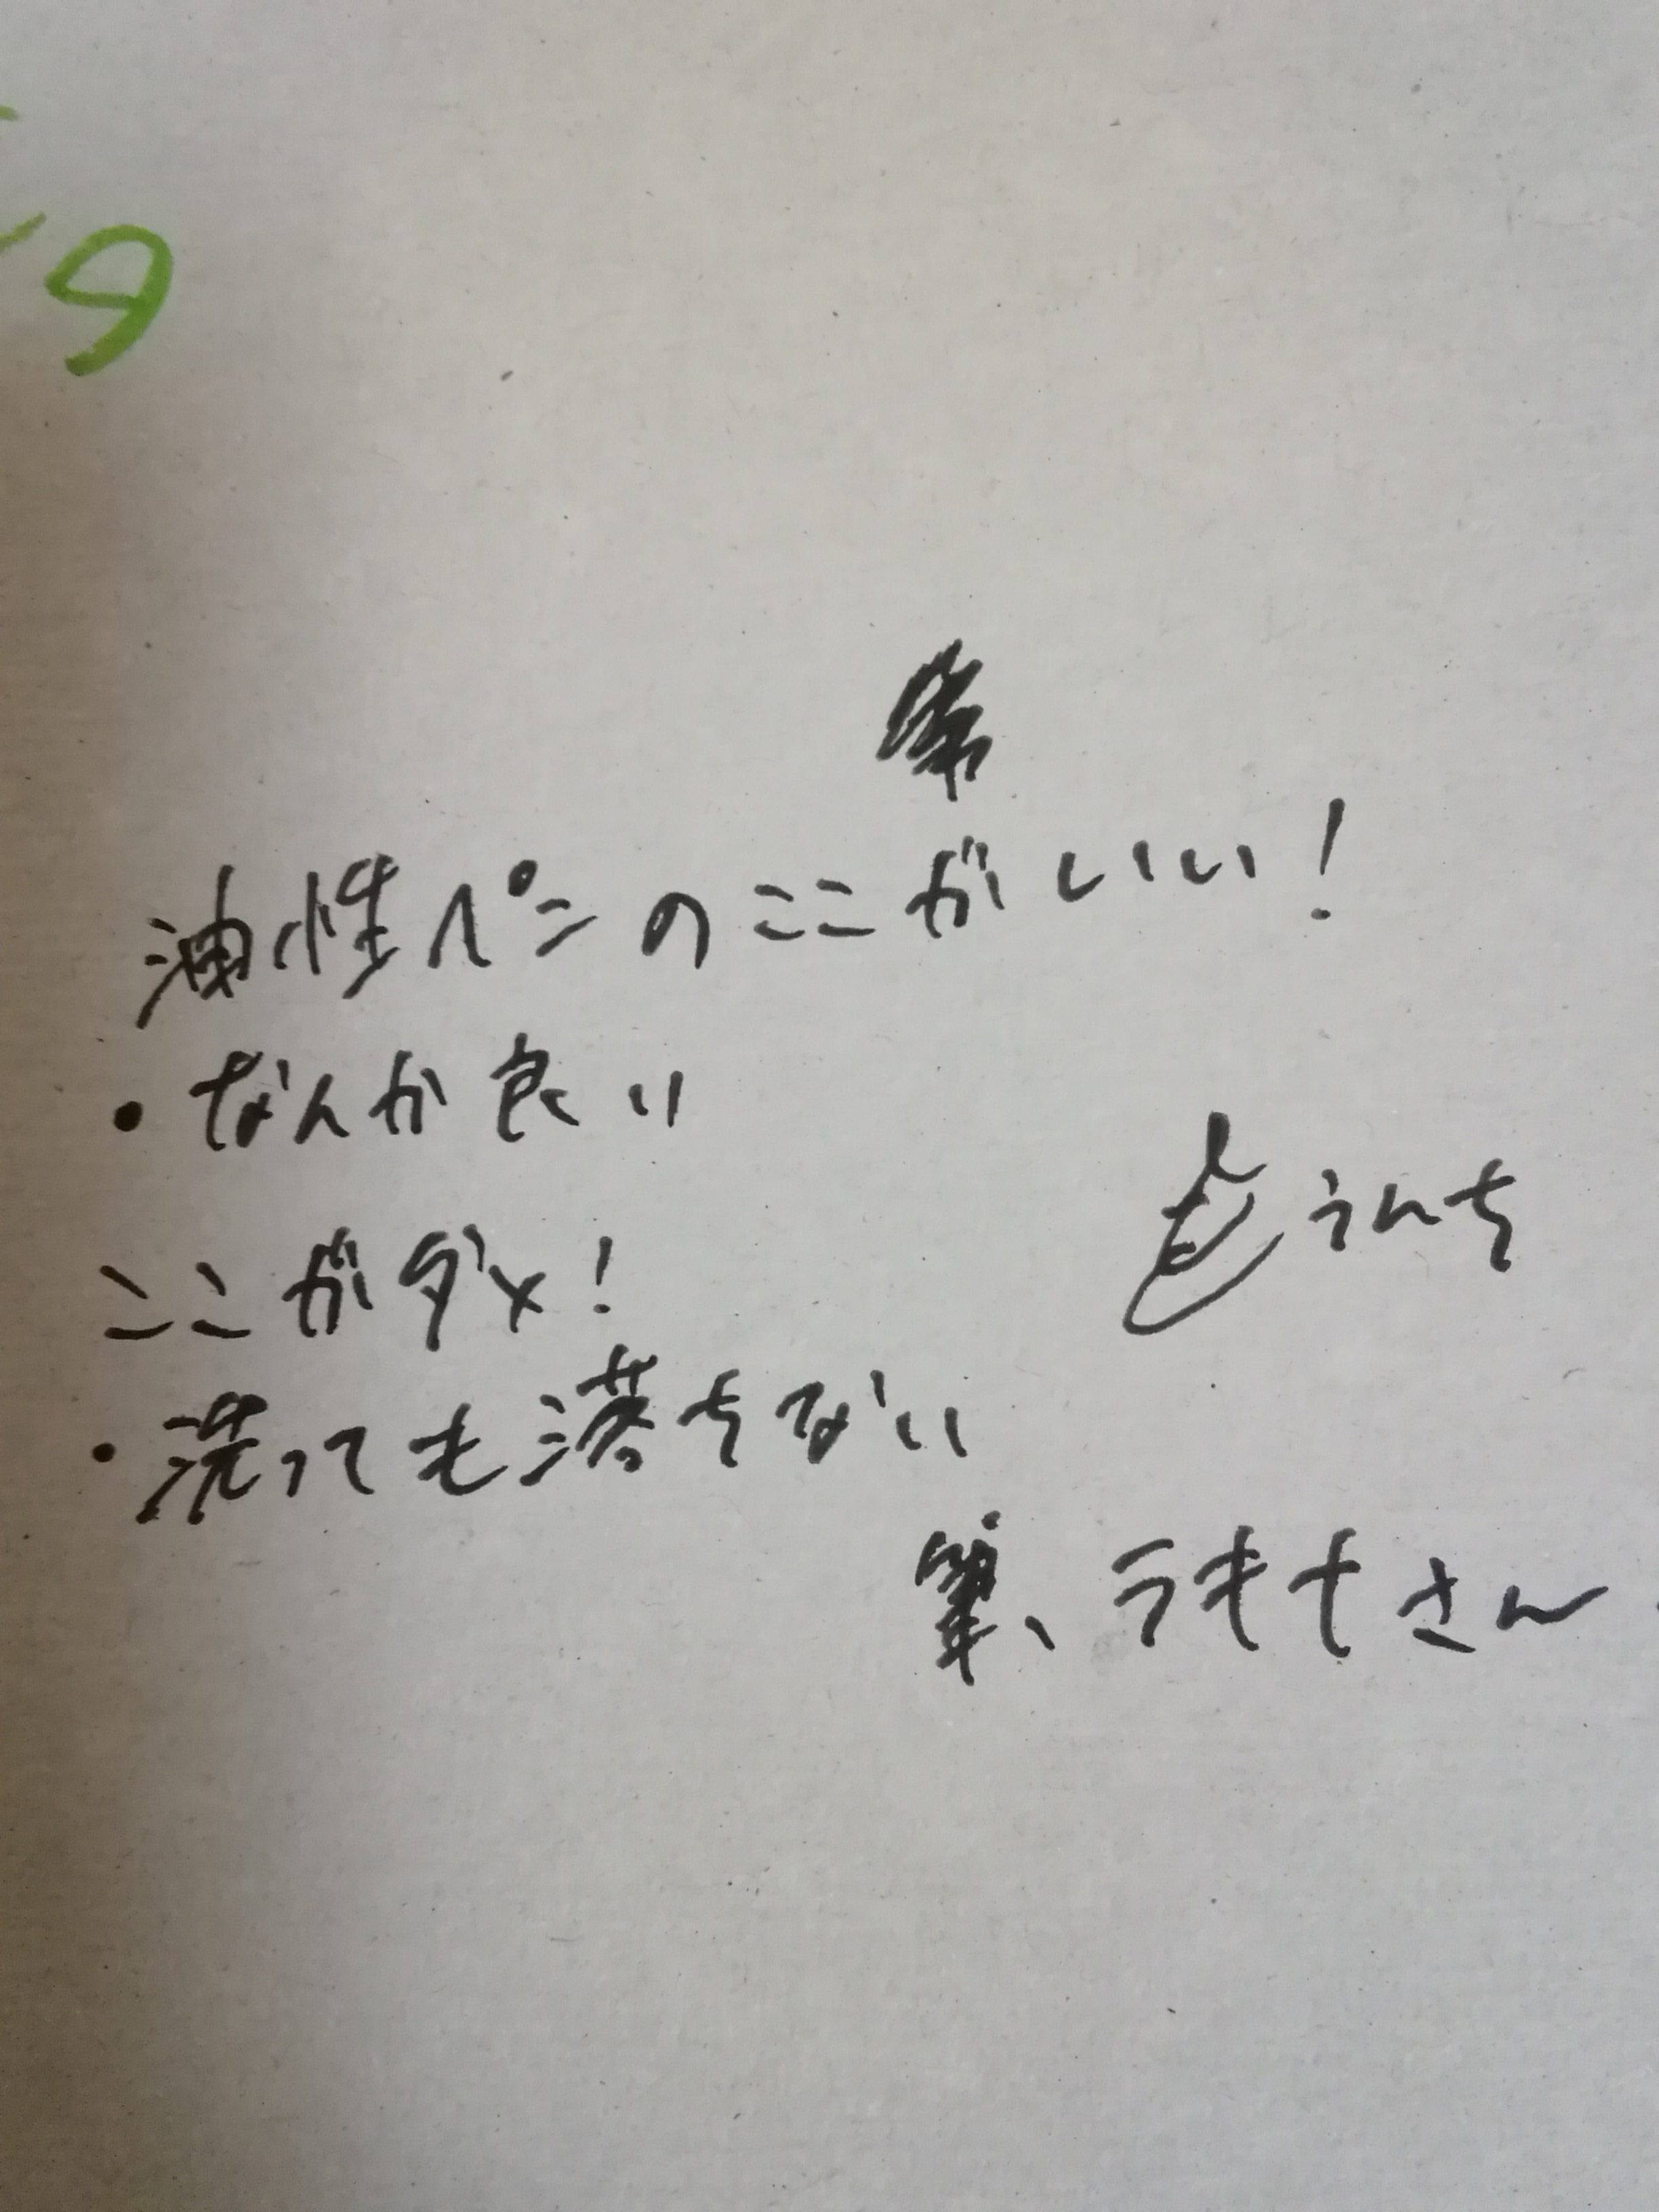 油性ペンのここがいい!
・なんか良い
うんち
ここがダメ!
・洗っても落ちない
筆、ラキナさん